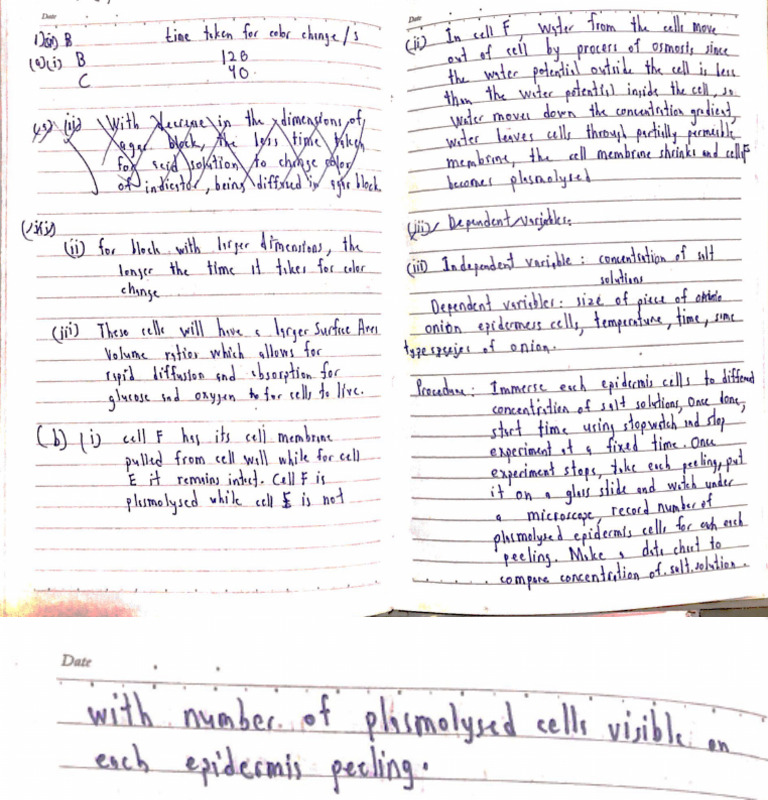 Date
1)(a) B time taken for color change/s
(a)(i) B 128
C 40
(ii) With decrease in the dimensions of
agar block, the less time taken
for acid solution to change color
of indicator, being diffused in agar block.
(ii) for block with larger dimensions, the
longer the time it takes for color
change
(iii) These cells will have a larger Surface Area
Volume ratios which allows for
rapid diffusion and absorption for
glucose and oxygen to for cells to live.
(b) (i) cell F has its cell membrane
pulled from cell wall while for cell
E it remains intact. Cell F is
plasmolysed while cell E is not
Date
(ii) In cell F, Water from the cells move
out of cell by process of osmosis, since
the water potential outside the cell is less
than the water potential inside the cell, so
Water moves down the concentration gradient,
water leaves cells through partially permeable
membrane, the cell membrane shrinks and cell F
becomes plasmolysed
(iii) Dependent variables:
(iii) Independent variable: concentration of salt
solutions
Dependent variables: size of piece of
onion epidermess cells, temperature, time, same
type species of onion.
Procedure: Immerse each epidermis cells to different
concentration of salt solutions, Once done,
start time using stopwatch and stop
experiment at a fixed time. Once
experiment stops, take each peeling, put
it on a glass slide and watch under
a microscope, record number of
plasmolysed epidermis cells for each each
peeling. Make a data chart to
compare concentration of salt solution
Date
with number of plasmolysed cells visible on
each epidermis peeling.